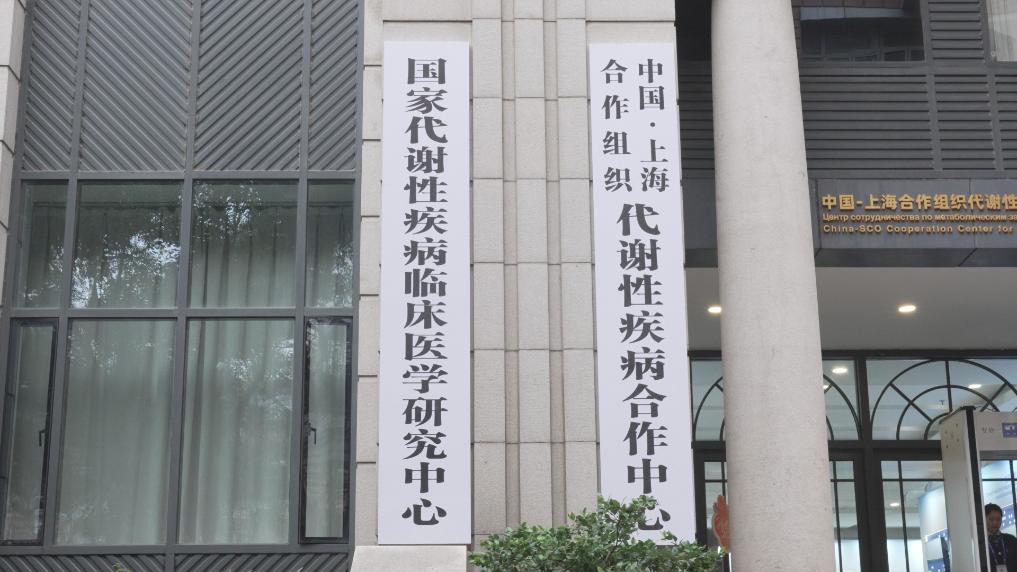 国家代谢性疾病临床医学研究中心
中国·上海
合作组织
代谢性疾病合作中心
中国-上海合作组织代谢性
Центр сотрудничества по метаболическим за
China-SCO Cooperation Center for